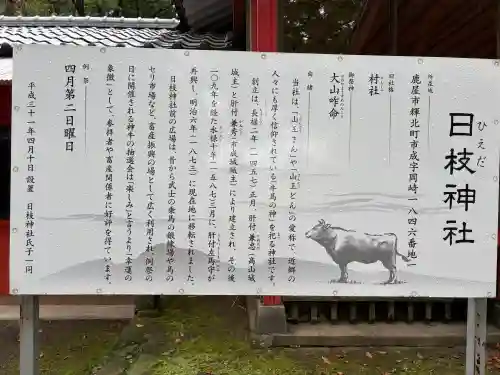 日枝神社
ひえだ
所在地
鹿屋市輝北町市成字岡崎一八四六番地
旧社格
村社
そんしゃ
御祭神
大山咋命
由緒
当社は、「山王さん」や「山王どん」の愛称で、近郷の
人々にも厚く信仰されている「牛馬の神」を祀る神社です。
創立は、長禄二年(一四五七)正月、肝付兼忠(高山城
城主)と肝付兼秀(市成城城主)により建立され、その後
一〇九年を経た永禄十年(一五八七)三月に、肝付左馬守が
再興し、明治六年(一八七三)に現在地に移転されました。
日枝神社前の広場は、昔から武士の乗馬の鍛練場や馬の
セリ市場など、畜産振興の場として広く利用され、例祭の
日に開催される神牛の抽選会は「楽しみ」と言うより「幸運の
象徴」として、参拝者や畜産関係者に好評を得ています。
例祭
四月第二日曜日
平成三十一年四月十日設置 日枝神社氏子一同